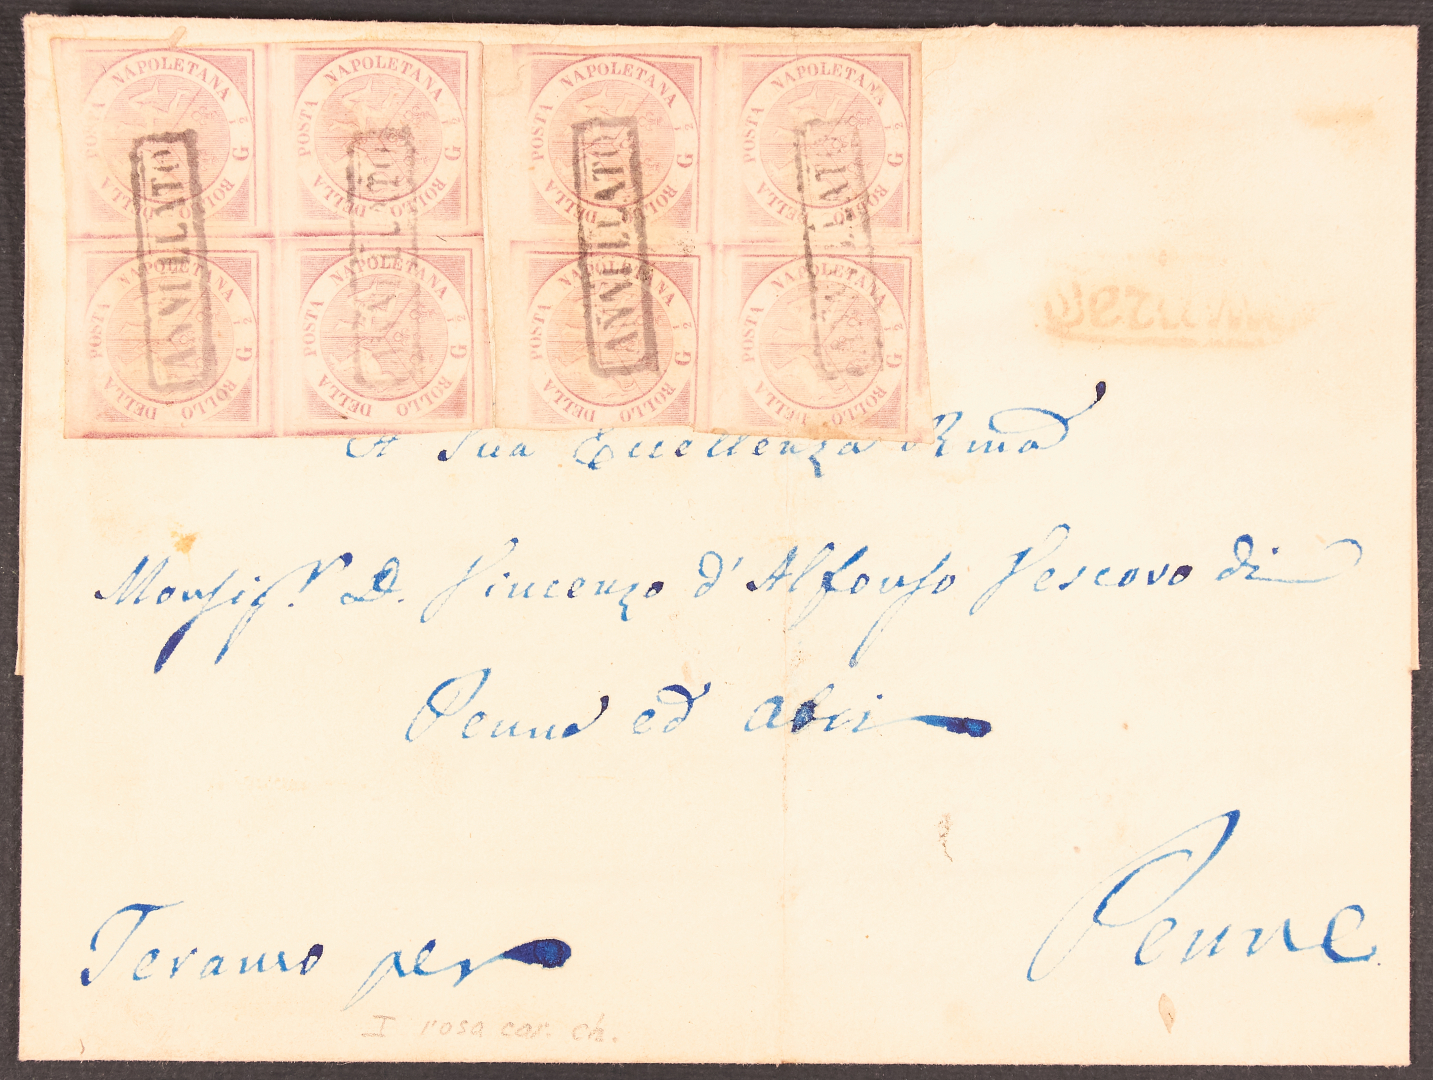 POSTA NAPOLETANA G ½ BOLLO DELLA
POSTA NAPOLETANA G ½ BOLLO DELLA
POSTA NAPOLETANA G ½ BOLLO DELLA
POSTA NAPOLETANA G ½ BOLLO DELLA
POSTA NAPOLETANA G ½ BOLLO DELLA
POSTA NAPOLETANA G ½ BOLLO DELLA
POSTA NAPOLETANA G ½ BOLLO DELLA
POSTA NAPOLETANA G ½ BOLLO DELLA
ANNULLATO
ANNULLATO
ANNULLATO
ANNULLATO
A Sua Eccellenza Rma
Monsigr. D. Vincenzo d'Alfonso Vescovo di
Penne ed Atri
Penne
Teramo per
I rosa car. ch.